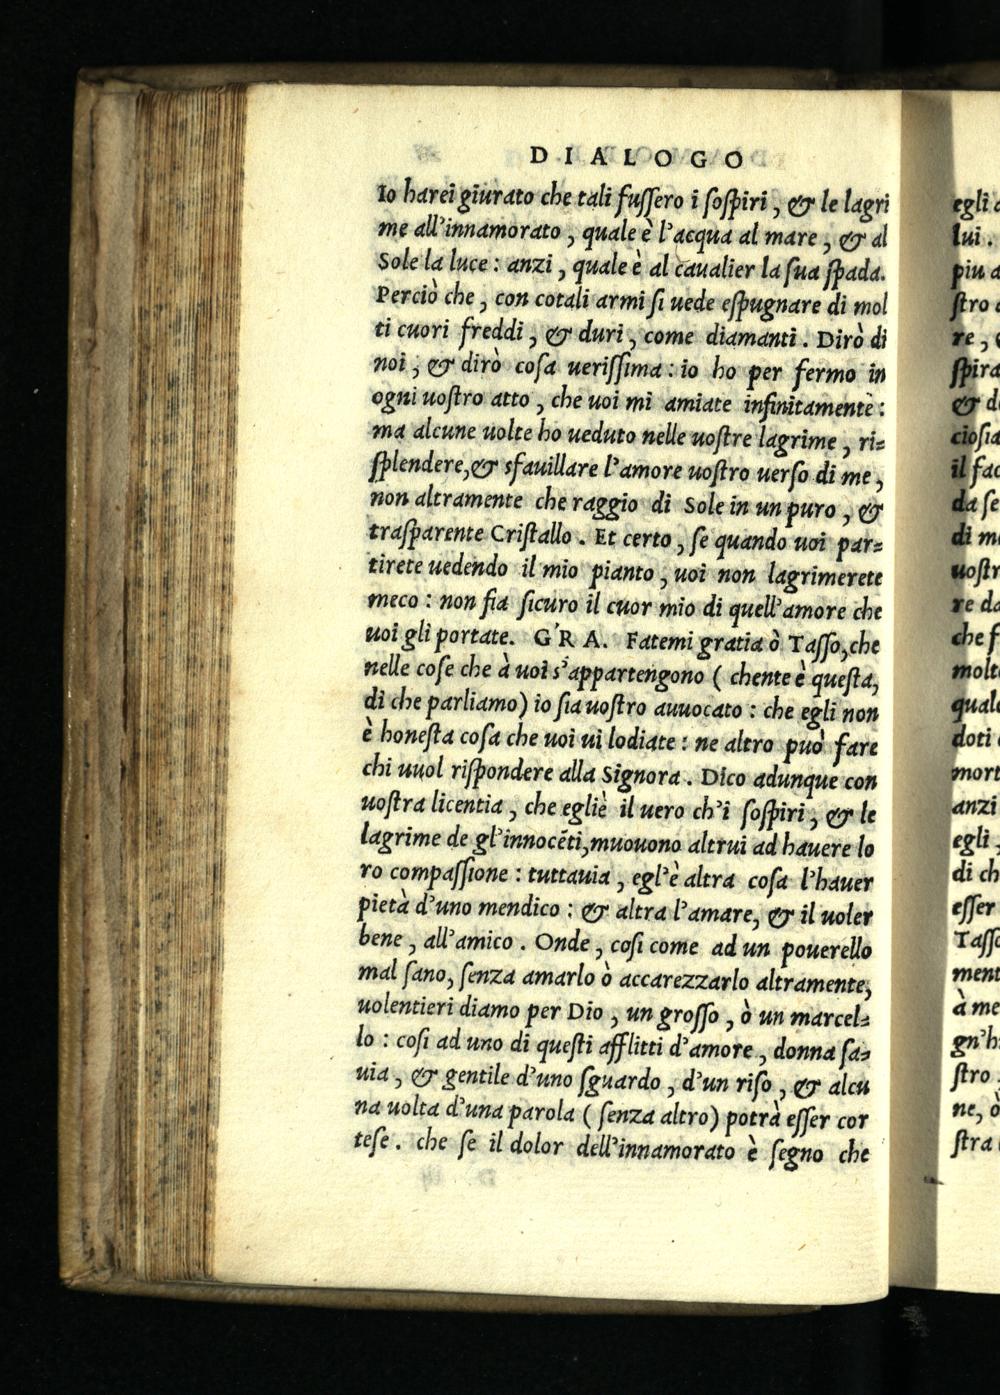 DIALOGO
Io harei giurato che tali fuſſero i ſoſpiri, & le lagri
me all'innamorato, quale è l'acqua al mare, & al
Sole la luce: anzi, quale è al caualier la ſua ſpada.
Perciò che, con cotali armi ſi uede eſpugnare di mol
ti cuori freddi, & duri, come diamanti. Dirò di
noi, & dirò coſa ueriſſima: io ho per fermo in
ogni uoſtro atto, che uoi mi amiate infinitamente:
ma alcune uolte ho ueduto nelle uoſtre lagrime, ri=
ſplendere, & sfauillare l'amore uoſtro uerſo di me,
non altramente che raggio di Sole in un puro, &
traſparente Criſtallo. Et certo, ſe quando uoi par=
tirete uedendo il mio pianto, uoi non lagrimerete
meco: non fia ſicuro il cuor mio di quell'amore che
uoi gli portate. GRA. Fatemi gratia ò Taſſo, che
nelle coſe che à uoi s'appartengono (chente è queſta,
di che parliamo) io ſia uoſtro auuocato: che egli non
è honeſta coſa che uoi ui lodiate: ne altro può fare
chi uuol riſpondere alla Signora. Dico adunque con
uoſtra licentia, che egliè il uero ch'i ſoſpiri, & le
lagrime de gl'innocẽti, muouono altrui ad hauere lo
ro compaſſione: tuttauia, egl'è altra coſa l'hauer
pietà d'uno mendico: & altra l'amare, & il uoler
bene, all'amico. Onde, coſi come ad un pouerello
mal ſano, ſenza amarlo ò accarezzarlo altramente,
uolentieri diamo per Dio, un groſſo, ò un marcel=
lo: coſi ad uno di queſti afflitti d'amore, donna ſa=
uia, & gentile d'uno ſguardo, d'un riſo, & alcu
na uolta d'una parola (ſenza altro) potrà eſſer cor
teſe. che ſe il dolor dell'innamorato è ſegno che